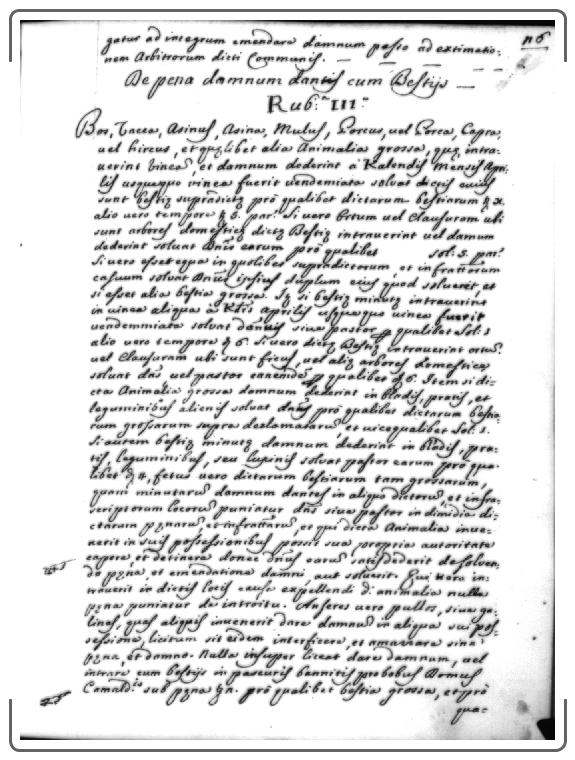 n6
gatur ad integrum emendare damnum passo ad extimatio-
nem Arbitrorum dicti Communis.
De pena damnum dantis cum Bestijs
Rub. III.
Bos, Vacca, Asinus, Asina, Mulus, Porcus, vel Porca, Capra,
vel hircus, et quęlibet alia Animalia grossa, quę intra-
uerint vineā, et damnum dederint à Kalendis Mensis Apri-
lis usquequo vinea fuerit vendemiata soluat dictis cuius
sunt bestię supradictę prò qualibet dictarum bestiarum
alio vero tempore 5. par. Si vero ortum vel Clausuram ubi
sunt arbores domesticę dictę Bestię intrauerint vel damum
dederint soluat Dnūs earum prò qualibet sol: 5. par.
Si vero esset equa in quolibet supradictorum, et infrattorum
casuum soluat Dnūs ipsius duplum eius quod solueret et
si esset alia bestia grossa. Itę si bestię minutę intrauerint
in vinea aliqua à Kłis Aprilis usquequo vinea fuerit
vendemmiata soluat siue pastor qualibet sol: 1
alio vero tempore 6. Si vero dictę Bestię intrauerint ortū
vel Clausuram ubi sunt ficus, vel alię arbores domesticę
soluat dnūs vel pastor qualibet 6. Item si di-
cta Animalia grossa damnum dederint in bladis, pratis, et
leguminibus alienis soluat dnūs prò qualibet dictarum bestia-
rum grossarum supra declamatarū et uicequalibet Sol: 1.
Si autem bestię minutę damnum dederint in bladis, pra-
tis, leguminibus, seu lupinis soluat pastor earum prò qua-
libet 4, fetus vero dictarum bestiarum tam grossarum,
quam minutarum damnum dantes in aliquo dictorū, et infra-
scriptorum locorū puniatur dnūs siue pastor in dimidia di-
ctarum pęnarū, et infrattarū, et qui dicta Animalia inue-
nerit in suis possessionibus possit sua propria autoritate
capere, et detinere donec dnūs earū satisdederit de soluen-
do pęna, et emendatione damni, aut soluerit. Qui vero in-
trauerit in dictis locis causa expellendi d. animalia nulla
pęna puniatur de introitu. Anseres vero pullos, siue ga-
linas, quas aliquis inuenerit dare damnū in aliqua sui pos-
sessione, licitum sit eidem interficere, et amazzare sine
pęna, et damno. Nulla insuper liceat dare damnum, vel
intrare cum bestijs in pascuis bannitis pro Domus
Camald. sub pęna prò qualibet bestia grossa, et prò
qua-